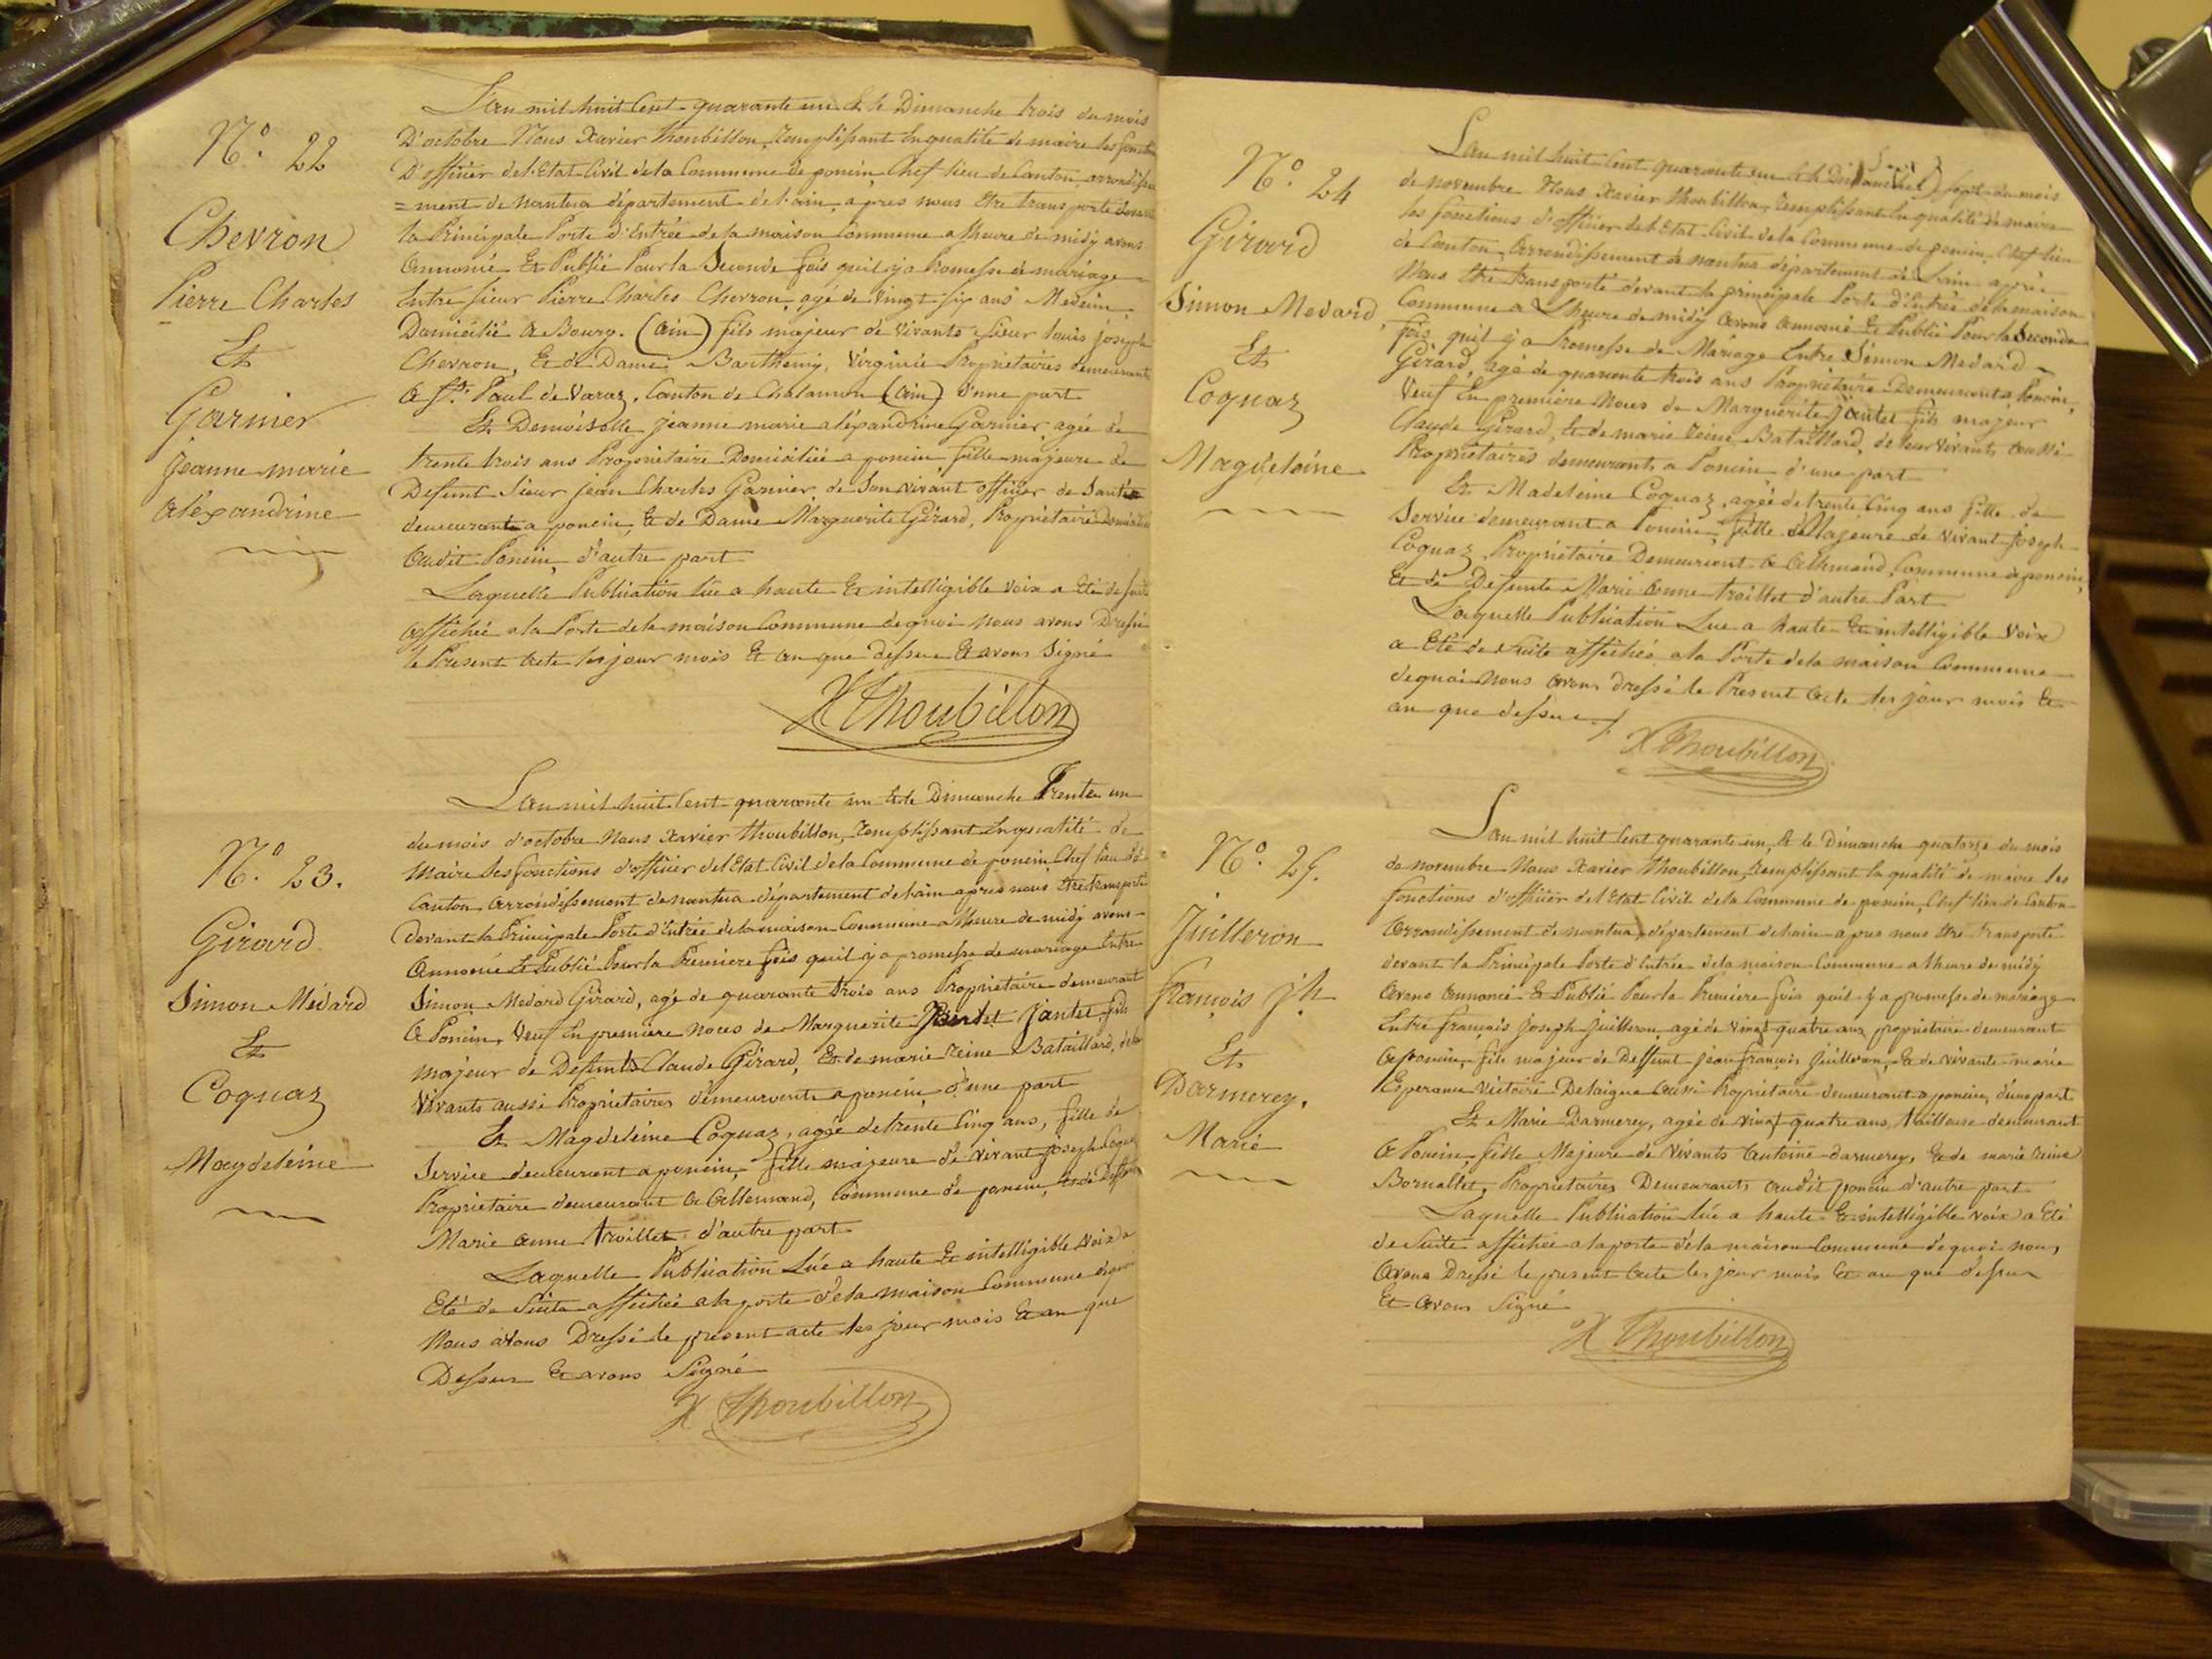 N.º 22
Chevron
Pierre Charles
Et
Garnier
Jeanne marie
aléxandrine
L'an mil huit Cent quarante un Et le Dimanche trois du mois
D'octobre Nous Xavier thoubillon, remplissant En qualité de maire les fonctions
D'officier de l'Etat Civil de la Commune de poncin Chef lieu de Canton, arrondisse
=ment de Nantua département de l'ain, apres nous Etre transporté devant
la Principale Porte d'Entrée de la maison Commune a l'heure de midy avons
annoncé Et Publié Pour la Seconde fois qu'il y a Promesse de mariage
Entre sieur Pierre Charles Chevron, agé de Vingt six ans Medecin
Domicilié a Bourg. (ain) fils majeur de Vivants sieur louis joseph
Chevron, Et de Dame Barthemy, Virginie Propriétaires demeurants
a St. Paul de Varaz, Canton de Chalamon (ain) d'une part
Et Demoiselle jeanne marie aléxandrine Garnier, agée de
trente trois ans Propriétaire Domiciliée a poncin, fille majeure de
Defunt sieur jean Charles Garnier, de Son vivant officier de Santée
demeurant a poncin, Et de Dame Marguerite Gérard, Propriétaire
audit Poncin, d'autre part
Laquelle Publication lüe a haute Et intelligible Voix a Eté de suite
affichée a la Porte de la maison Commune de quoi Nous avons Dressé
le Present acte les jour mois Et an que dessus Et avons Signé
X Thoubillon
N.º 23.
Girard
Simon Médard
Et
Coquaz
Magdeleine
L'an mil huit Cent quarante un Et le Dimanche Trente un
du mois d'octobre Nous Xavier thoubillon, remplissant En qualité de
Maire les fonctions d'officier de l'Etat Civil de la Commune de poncin Chef lieu de
Canton arrondissement de nantua département de l'ain apres nous Etre transporté
Devant la Principale Porte d'Entrée de la maison Commune a l'heure de midy avons
annoncé Et Publié Pour la Premiere fois qu'il y a promesse de mariage Entre
Simon Medard Girard, agé de quarante trois ans Propriétaire demeurant
a Poncin, Veuf En premiere noces de Marguerite Jantet fils
majeur de Defunts Claude Gérard, Et de marie reine Bataillard, de leur
Vivants aussi Propriétaires demeurants a poncin, d'une part
Et Magdeleine Coquaz, agée de trente Cinq ans, fille de
Service demeurant a poncin, fille majeure de vivant joseph Coquaz
Propriétaire demeurant a allemand, Commune de poncin, Et de Defunte
Marie anne troillet d'autre part
Laquelle Publication Lüe a haute Et intelligible Voix a
Eté de Suite affichée a la porte de la maison Commune de quoi
Nous avons Dressé le present acte les jour mois Et an que
Dessus Et avons Signé
X Thoubillon
N.º 24
Girard
Simon Medard,
Et
Coquaz
Magdeleine
L'an mil huit Cent quarante un Et le Dimanche sept du mois
de novembre Nous Xavier thoubillon, remplissant En qualité de maire
les fonctions d'officier de l'Etat Civil de la Commune de poncin Chef lieu
de Canton, arrondissement de nantua département de L'ain après
Nous Etre transporté devant la principale Porte d'Entrée de la maison
Commune a L'heure de midy avons annoncé Et Publié Pour la Seconde
fois qu'il y a Promesse de Mariage Entre Simon Medard
Gérard, agé de quarante trois ans Propriétaire Demeurant a Poncin,
Veuf En premiere Noces de Marguerite Jantet fils majeur
Claude Gérard, Et de marie reine Bataillard, de leur Vivants aussi
Propriétaires demeurants a Poncin d'une part
Et Madeleine Coquaz, agée de trente Cinq ans fille de
Service demeurant a Poncin, fille Majeure de Vivant Joseph
Coquaz, Propriétaire Demeurant a allemand, Commune de poncin,
Et de Defunte Marie anne troillet d'autre Part
Laquelle Publication Lue a haute Et intelligible Voix
a Eté de Suite affichée a la Porte de la maison Commune
de quoi Nous avons dressé le Present acte les jour mois Et
an que dessus
X Thoubillon
N.º 25.
Juilleron
François jh.
Et
Darmerey.
Marie
L'an mil huit Cent quarante un, Et le Dimanche quatorze du mois
de novembre Nous Xavier thoubillon, remplissant la qualité de maire les
fonctions d'officier de l'Etat Civil de la Commune de poncin, Chef lieu de Canton
arrondissement de nantua, département de l'ain apres nous Etre transporté
devant la Principale Porte d'Entrée de la maison Commune a l'heure de midy
avons annoncé Et Publié Pour la Premiere fois qu'il y a promesse de mariage
Entre françois joseph juilleron, agé de vingt quatre ans propriétaire demeurant
a poncin, fils majeur de Deffunt jean françois juilleron, Et de vivante marie
Esperance Victoire Delaigue aussi Propriétaire demeurant a poncin, d'une part
Et Marie Darmerey, agée de vingt quatre ans, tailleuse demeurant
a Poncin, fille Majeure de Vivants antoine darmerey, Et de marie aimé
Bornallet, Propriétaires Demeurants audit poncin d'autre part
Laquelle Publication lüe a haute Et intelligible voix a Eté
de Suite affichée a la porte de la maison Commune de quoi nous
avons Dressé le present acte les jour mois Et an que dessus
Et avons Signé
X Thoubillon